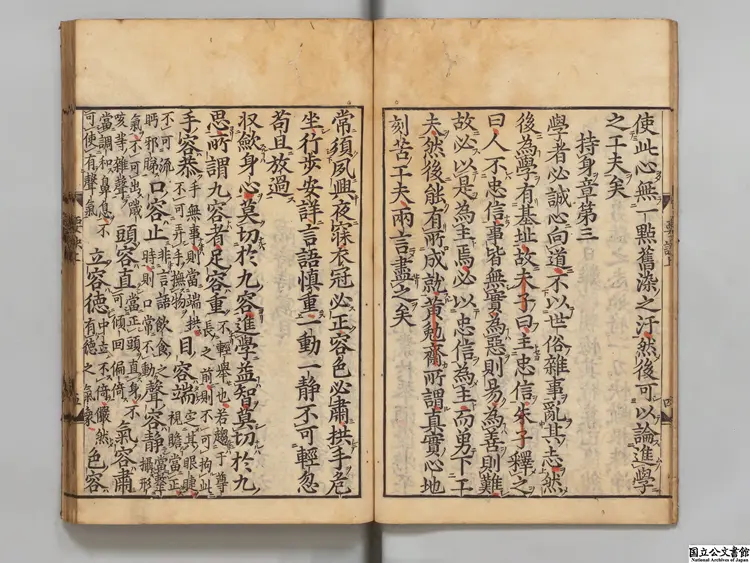 使此心無一點舊染之汙然後可以論進學
之工夫矣
持身章第三
學者必誠心向道不以世俗雜事亂其志然
後為學有基址故夫子曰主忠信朱子釋之
曰人不忠信事皆無實為惡則易為善則難
故必以是為主焉必以忠信為主而勇下工
夫然後能有所成就黃勉齋所謂真實心地
刻苦工夫兩言盡之矣
常須夙興夜寐衣冠必正容色必肅拱手危
坐行步安詳言語慎重一動一靜不可輕忽
苟且放過
収斂身心莫切於九容進學益智莫切於九
思所謂九容者足容重不輕擧也若趨于尊長之前則不可拘此
手容恭手無事則當端拱不可弄手撫物目容端定其眼睫視瞻當正
不可流眄邪睇口容止非言語飲食之時則口常不動聲容靜當整攝形
氣不可出噦咳等雜聲頭容直當正頭直身不可傾回偏倚氣容肅
當調和鼻息不可使有聲氣立容德中立不倚儼然有德之氣象色容
国立公文書館
National Archives of Japan